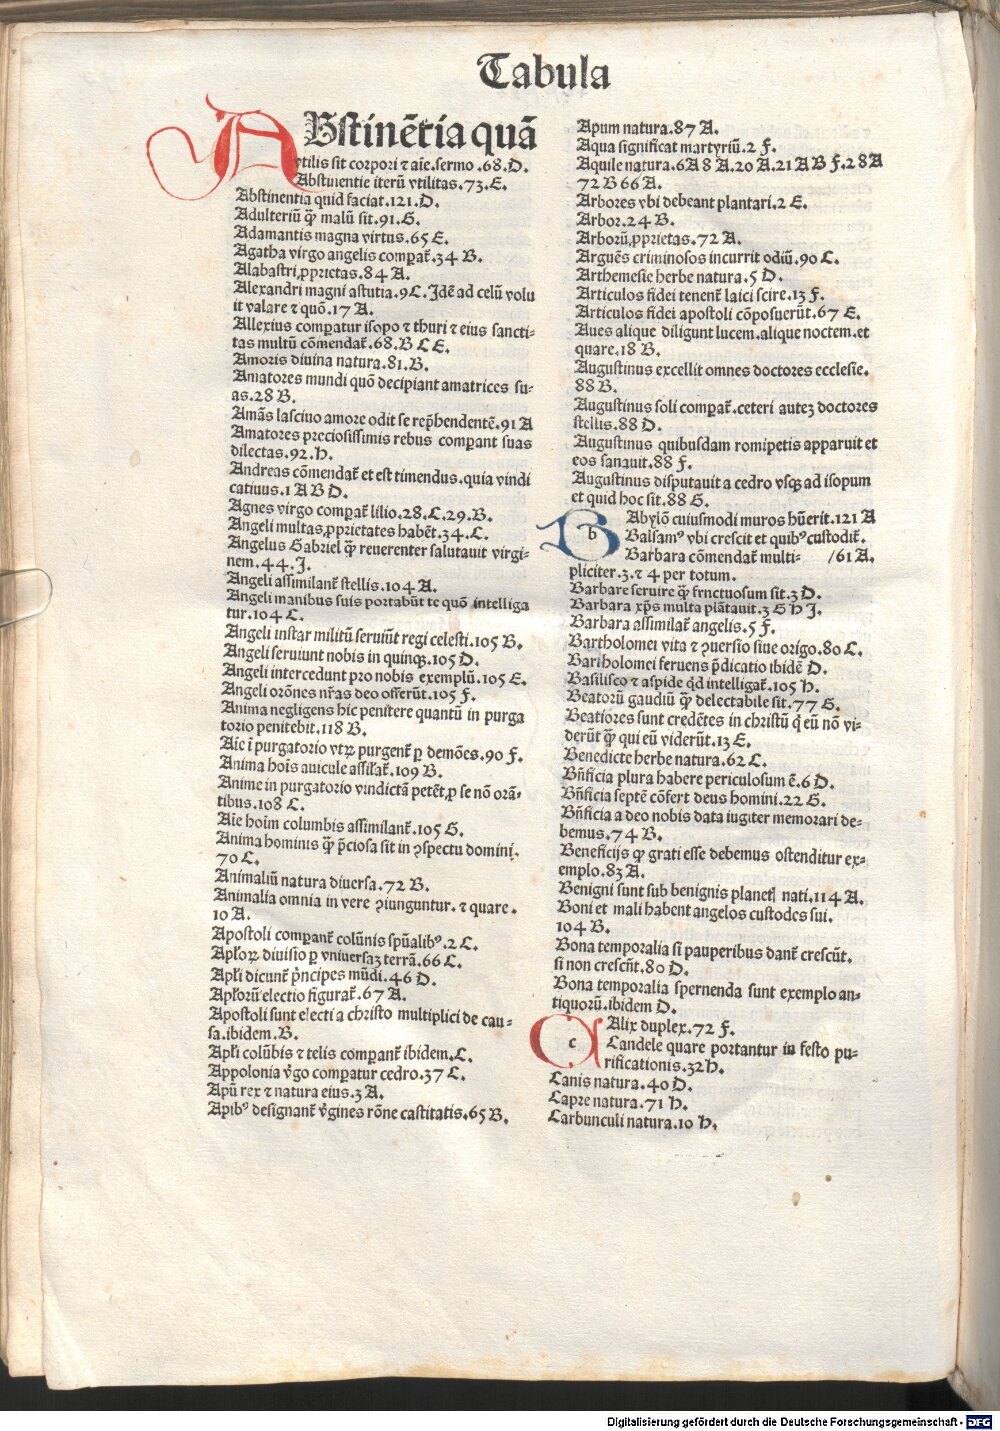 Tabula
ABstinētia quā
vtilis sit corpori ⁊ aīe.sermo.68.D.
Abstinentie iterū vtilitas.73.E.
Abstinentia quid faciat.121.D.
Adulteriū q̄ȝ malū sit.91.G.
Adamantis magna virtus.65 E.
Agatha virgo angelis compat̄.34 B.
Alabastri ꝓprietas.84 A.
Alexandri magni astutia.9 C. Idē ad celū volu
it valare ⁊ quō.17 A.
Allexius compatur isopo ⁊ thuri ⁊ eius sancti-
tas multū cōmendat̄.68.B C E.
Amoris diuina natura.81.B.
Amatores mundi quō decipiant amatrices su-
as.28 B.
Amās lasciuo amore odit se rep̄hendentē.91 A
Amatores preciosissimis rebus compant suas
dilectas.92.H.
Andreas cōmendat̄ et est timendus.quia vindi
catiuus.1 A B D.
Agnes virgo compat̄ lilio.28.C.29.B.
Angeli multas ꝓprietates habēt.34.C.
Angelus Gabriel q̄ȝ reuerenter salutauit virgi-
nem.44.J.
Angeli assimilant̄ stellis.104 A.
Angeli manibus suis portabūt te quō intelliga
tur.104 C.
Angeli instar militū seruiūt regi celesti.105 B.
Angeli seruiunt nobis in quinqȝ.105 D.
Angeli intercedunt pro nobis exemplū.105 E.
Angeli orōnes nr̄as deo offerūt.105 F.
Anima negligens hic penitere quantū in purga
torio penitebit.118 B.
Aīe ī purgatorio vtꝝ purgent̄ ꝑ demōes.90 F.
Anima hoīs auicule assiłat̄.109 B.
Anime in purgatorio vindictā petēt,ꝓ se nō orā-
tibus.108 C.
Aīe hoīm columbis assimilant̄.105 G.
Anima hominis q̄ȝ p̄ciosa sit in ꝯspectu domini.
70 C.
Animaliū natura diuersa.72 B.
Animalia omnia in vere ꝯiunguntur.⁊ quare.
10 A.
Apostoli compant̄ colūnis spūalibꝰ.2 C.
Apłoꝝ diuisio ꝑ vniuersaȝ terrā.66 C.
Apłi dicunt̄ p̄ncipes mūdi.46 D.
Apłorū electio figurat̄.67 A.
Apostoli sunt electi a christo multiplici de cau-
sa.ibidem.B.
Apłi colūbis ⁊ telis compant̄ ibidem.C.
Appolonia v̄go compatur cedro.37 C.
Apū rex ⁊ natura eius.3 A.
Apibꝰ designant̄ v̄gines rōne castitatis.65 B.
Apum natura.87 A.
Aqua significat martyriū.2 F.
Aquile natura.6 A 8 A.20 A.21 A B F.28 A
72 B 66 A.
Arbores vbi debeant plantari.2 E.
Arbor.24 B.
Arborū ꝓprietas.72 A.
Arguēs criminosos incurrit odiū.90 C.
Arthemesie herbe natura.5 D.
Articulos fidei tenent̄ laici scire.13 F.
Articulos fidei apostoli cōposuerūt.67 E.
Aues alique diligunt lucem.alique noctem.et
quare.18 B.
Augustinus excellit omnes doctores ecclesie.
88 B.
Augustinus soli compat̄.ceteri auteȝ doctores
stellis.88 D.
Augustinus quibusdam romipetis apparuit et
eos sanauit.88 F.
Augustinus disputauit a cedro vsqȝ ad isopum
et quid hoc sit.88 G.
b
BAbylō cuiusmodi muros hūerit.121 A
Balsamꝰ vbi crescit et quibꝰ custodit̄.
Barbara cōmendat̄ multi- /61 A.
pliciter.3.⁊ 4 per totum.
Barbare seruire q̄ȝ frnctuosum sit.3 D.
Barbara xp̄s multa plātauit.3 G H J.
Barbara assimilat̄ angelis.5 F.
Bartholomei vita ⁊ ꝯuersio siue origo.80 C.
Bartholomei feruens p̄dicatio ibidē D.
Basilisco ⁊ aspide qd̄ intelligat̄.105 H.
Beatorū gaudiū q̄ȝ delectabile sit.77 G.
Beatiores sunt credētes in christū q̄ eū nō vi-
derūt q̄ȝ qui eū viderūt.13 E.
Benedicte herbe natura.62 C.
Bn̄ficia plura habere periculosum ē.6 D.
Bn̄ficia septē cōfert deus homini.22 G.
Bn̄ficia a deo nobis data iugiter memorari de-
bemus.74 B.
Beneficijs qȝ grati esse debemus ostenditur ex-
emplo.83 A.
Benigni sunt sub benignis planetꝭ nati.114 A.
Boni et mali habent angelos custodes sui.
104 B.
Bona temporalia si pauperibus dant̄ crescūt.
si non crescūt.80 D.
Bona temporalia spernenda sunt exemplo an-
tiquorū.ibidem D.
c
CAlix duplex.72 F.
Candele quare portantur in festo pu-
rificationis.32 H.
Canis natura.40 D.
Capre natura.71 H.
Carbunculi natura.10 H.
Digitalisierung gefördert durch die Deutsche Forschungsgemeinschaft - DFG